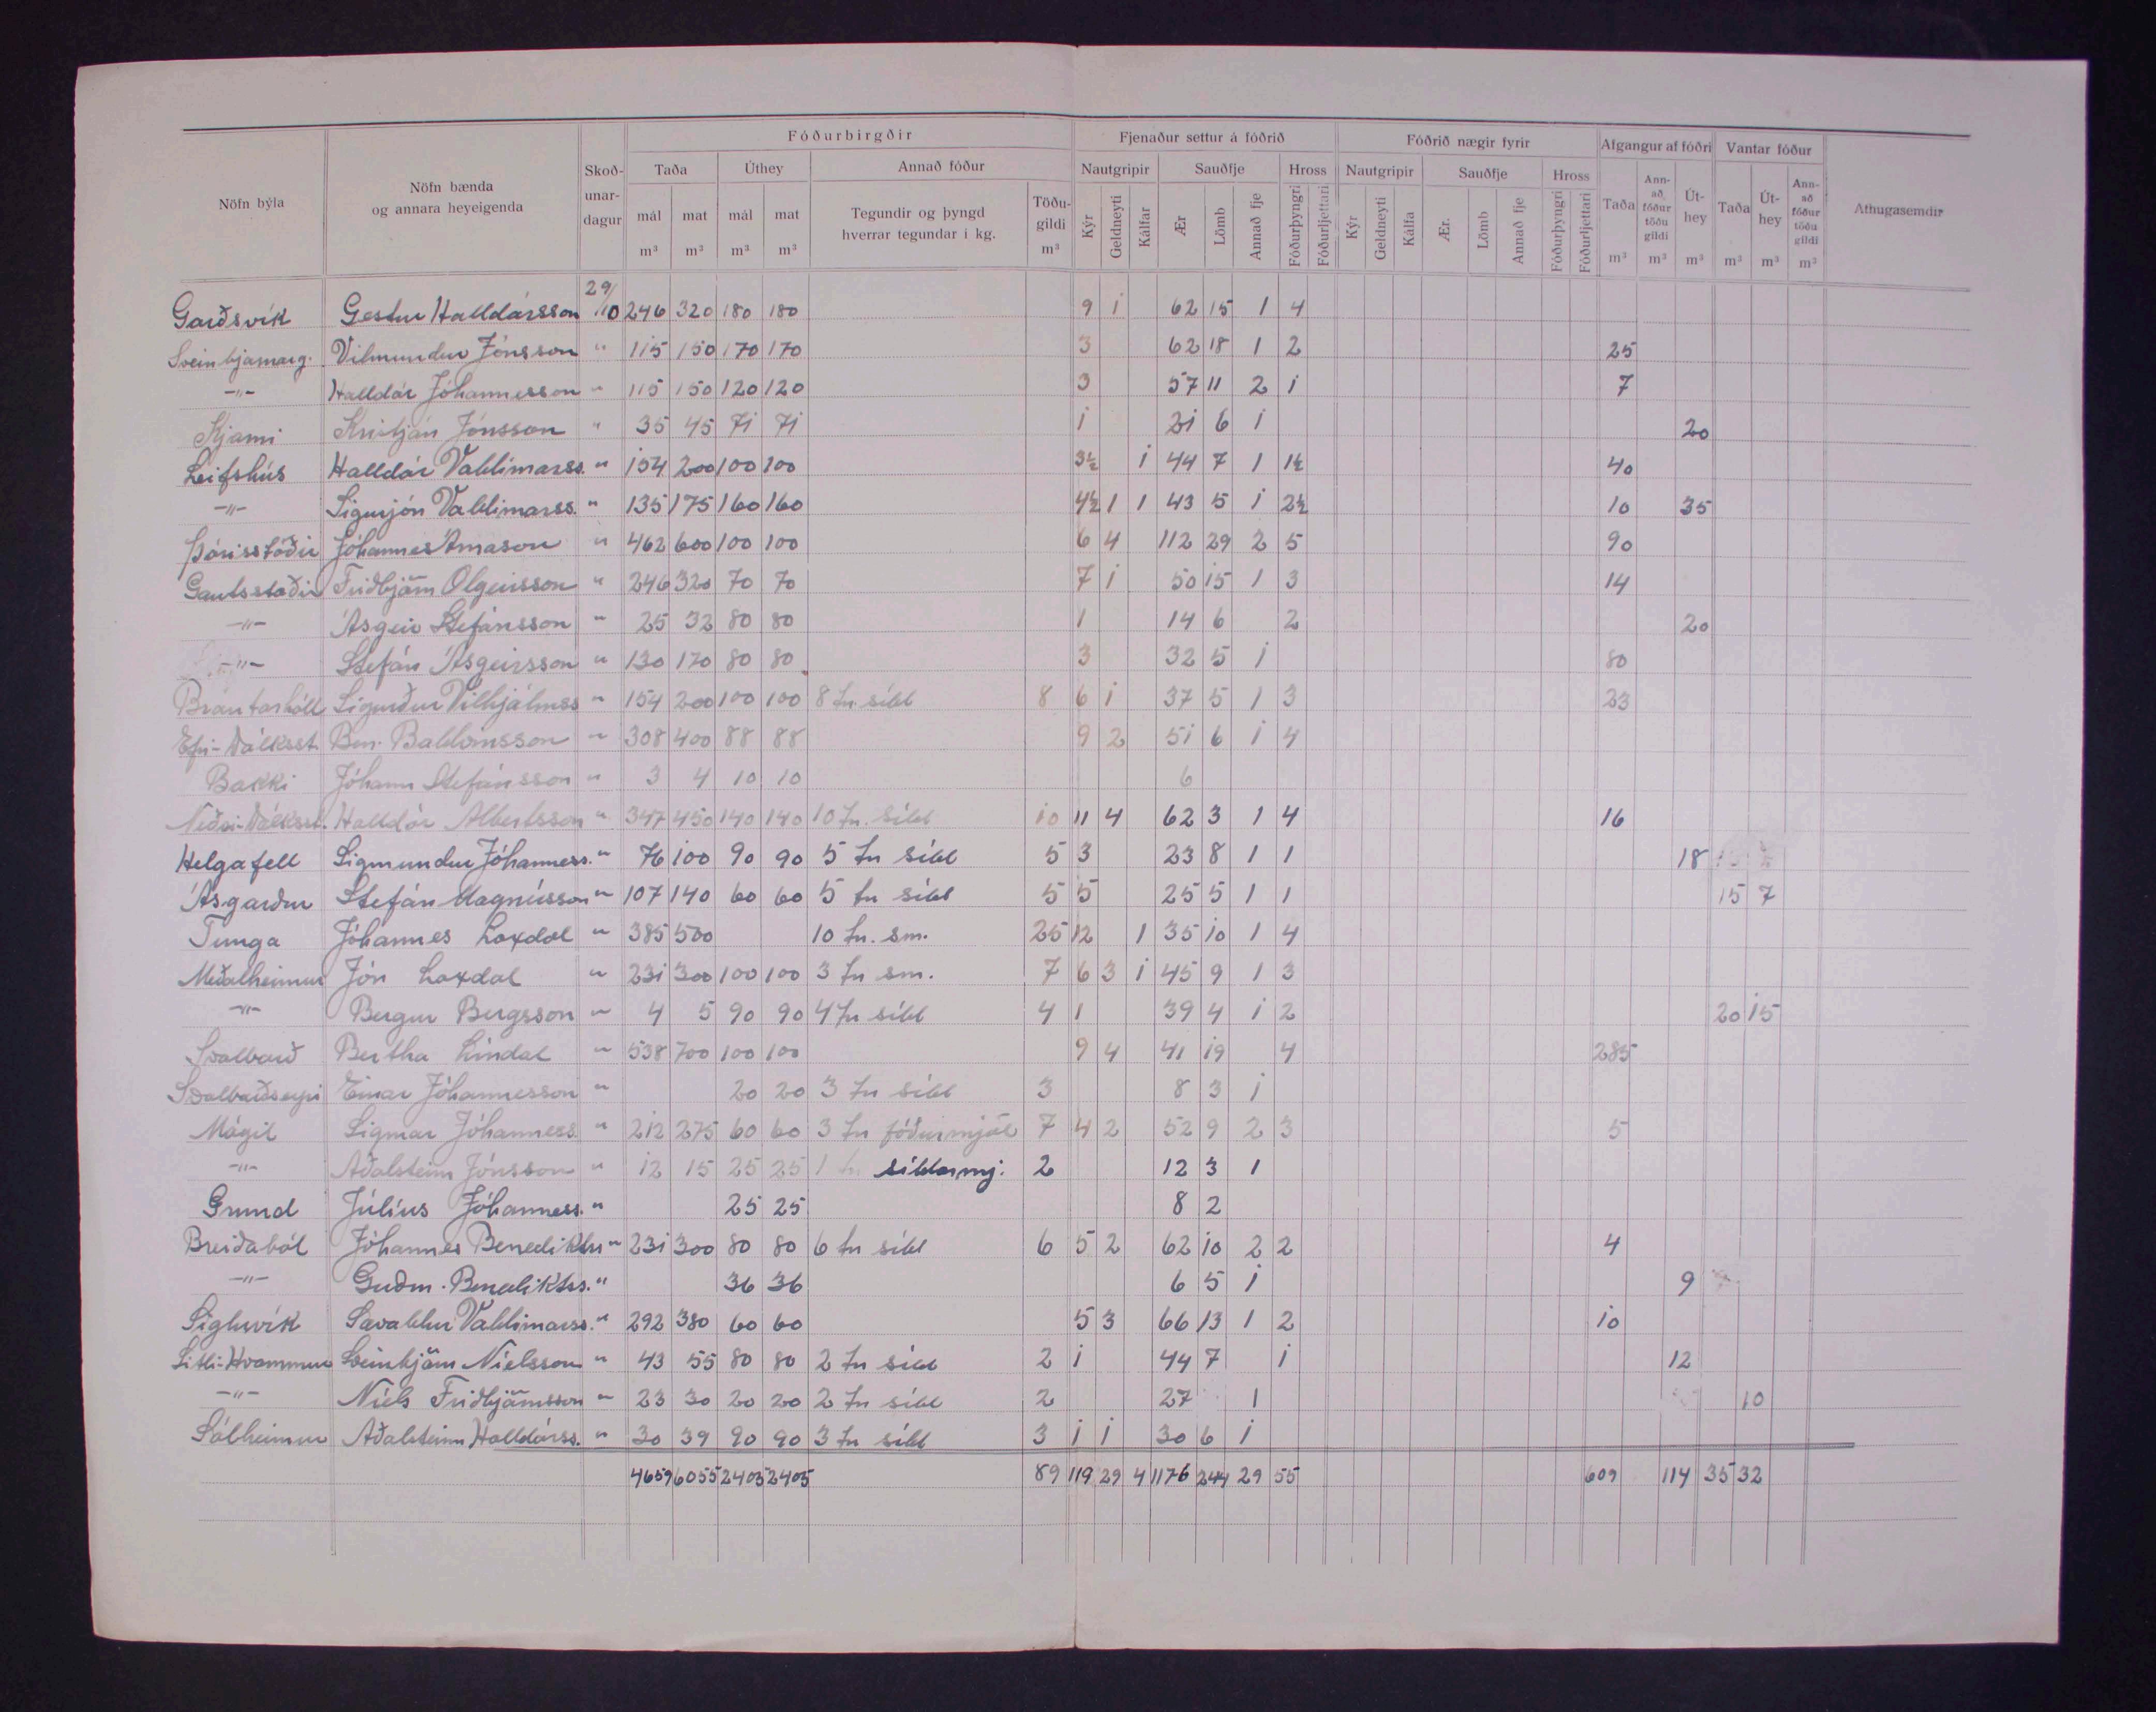 Fóðurbirgðir Fjenaður settur á fóðrið Fóðrið nægir fyrir Afgangur af fóðri Vantar fóður
Nöfn býla Nöfn bænda og annara heyeigenda Skoðunardagur Taða Úthey Annað fóður Nautgripir Sauðfje Hross Nautgripir Sauðfje Hross Taða Annað fóður töðu gildi Úthey Taða Úthey Annað fóður töðu gildi Athugasemdir
mál mat mál mat Tegundir og þyngd hverrar tegundar í kg. Töðugildi Kýr Geldneyti Kálfar Ær Lömb Annað fje Fóðurþyngri Fóðurljettari Kýr Geldneyti Kálfa Ær. Lömb Annað fje Fóðurþyngri Fóðurljettari
m³ m³ m³ m³ m³ m³ m³ m³ m³ m³ m³
Garðsvík Gestur Halldórsson 29/10 246 320 180 180 9 1 62 15 1 4
Sveinbjarnarg. Vilmundur Jónsson " 115 150 170 170 3 62 18 1 2 25
-"- Halldór Jóhannesson " 115 150 120 120 3 57 11 2 1 7
Kristján Jónsson " 35 45 71 71 1 21 6 1 20
Leifshús Halldór Valdimarss. " 154 200 100 100 3½ 1 44 7 1 1½ 40
-"- Sigurjón Valdimarss. " 135 175 160 160 4½ 1 1 43 5 1 2½ 10 35
Þórisstöðir Jóhannes Árnason " 462 600 100 100 6 4 112 29 2 5 90
Gautsstaðir Friðbjörn Olgeirsson " 246 320 70 70 7 1 50 15 1 3 14
-"- Ásgeir Stefánsson " 25 32 80 80 1 14 6 2 20
-"- Stefán Ásgeirsson " 130 170 80 80 3 32 5 1 80
Brautarhóll Sigurður Vilhjálmss " 154 200 100 100 8 tn síld 8 6 1 37 5 1 3 23
Efri-Dálksst. Ben. Baldvinsson " 308 400 88 88 9 2 51 6 1 4
Bakki Jóhann Stefánsson " 3 4 10 10 6
Neðri-Dálksst. Halldór Albertsson " 347 450 140 140 10 tn. síld 10 11 4 62 3 1 4 16
Helgafell Sigmundur Jóhanness. " 76 100 90 90 5 tn síld 5 3 23 8 1 1 18
Ásgarður Stefán Magnússon " 107 140 60 60 5 tn síld 5 5 25 5 1 1 15 7
Tunga Jóhannes Laxdal " 385 500 10 tn. sm. 25 12 1 35 10 1 4
Meðalheimur Jón Laxdal " 231 300 100 100 3 tn sm. 7 6 3 1 45 9 1 3
-"- Bergur Bergsson " 4 5 90 90 4 tn síld 4 1 39 4 1 2 20 15
Svalbarð Bertha Líndal " 538 700 100 100 9 4 41 19 4 285
Svalbarðseyri Einar Jóhannesson " 20 20 3 tn síld 3 8 3 1
Mógil Sigmar Jóhanness. " 212 275 60 60 3 tn fóðurmjöl 7 4 2 52 9 2 3 5
-"- Aðalsteinn Jónsson " 12 15 25 25 1 tn síldarmj. 2 12 3 1
Grund Júlíus Jóhanness. " 25 25 8 2
Breiðaból Jóhannes Benediktss " 231 300 80 80 6 tn síld 6 5 2 62 10 2 2 4
-"- Guðm. Benediktss. " 36 36 6 5 1 9
Sigluvík Sævaldur Valdimarss. " 292 380 60 60 5 3 66 13 1 2 10
Litli-Hvammur Sveinbjörn Níelsson " 43 55 80 80 2 tn síld 2 1 44 7 1 12
-"- Níels Friðbjörnsson " 23 30 20 20 2 tn síld 2 27 1 10
Sólheimur Aðalsteinn Halldórss. " 30 39 90 90 3 tn síld 3 1 1 30 6 1
4659 6055 2405 2405 89 119 29 4 1176 244 29 55 609 114 35 32